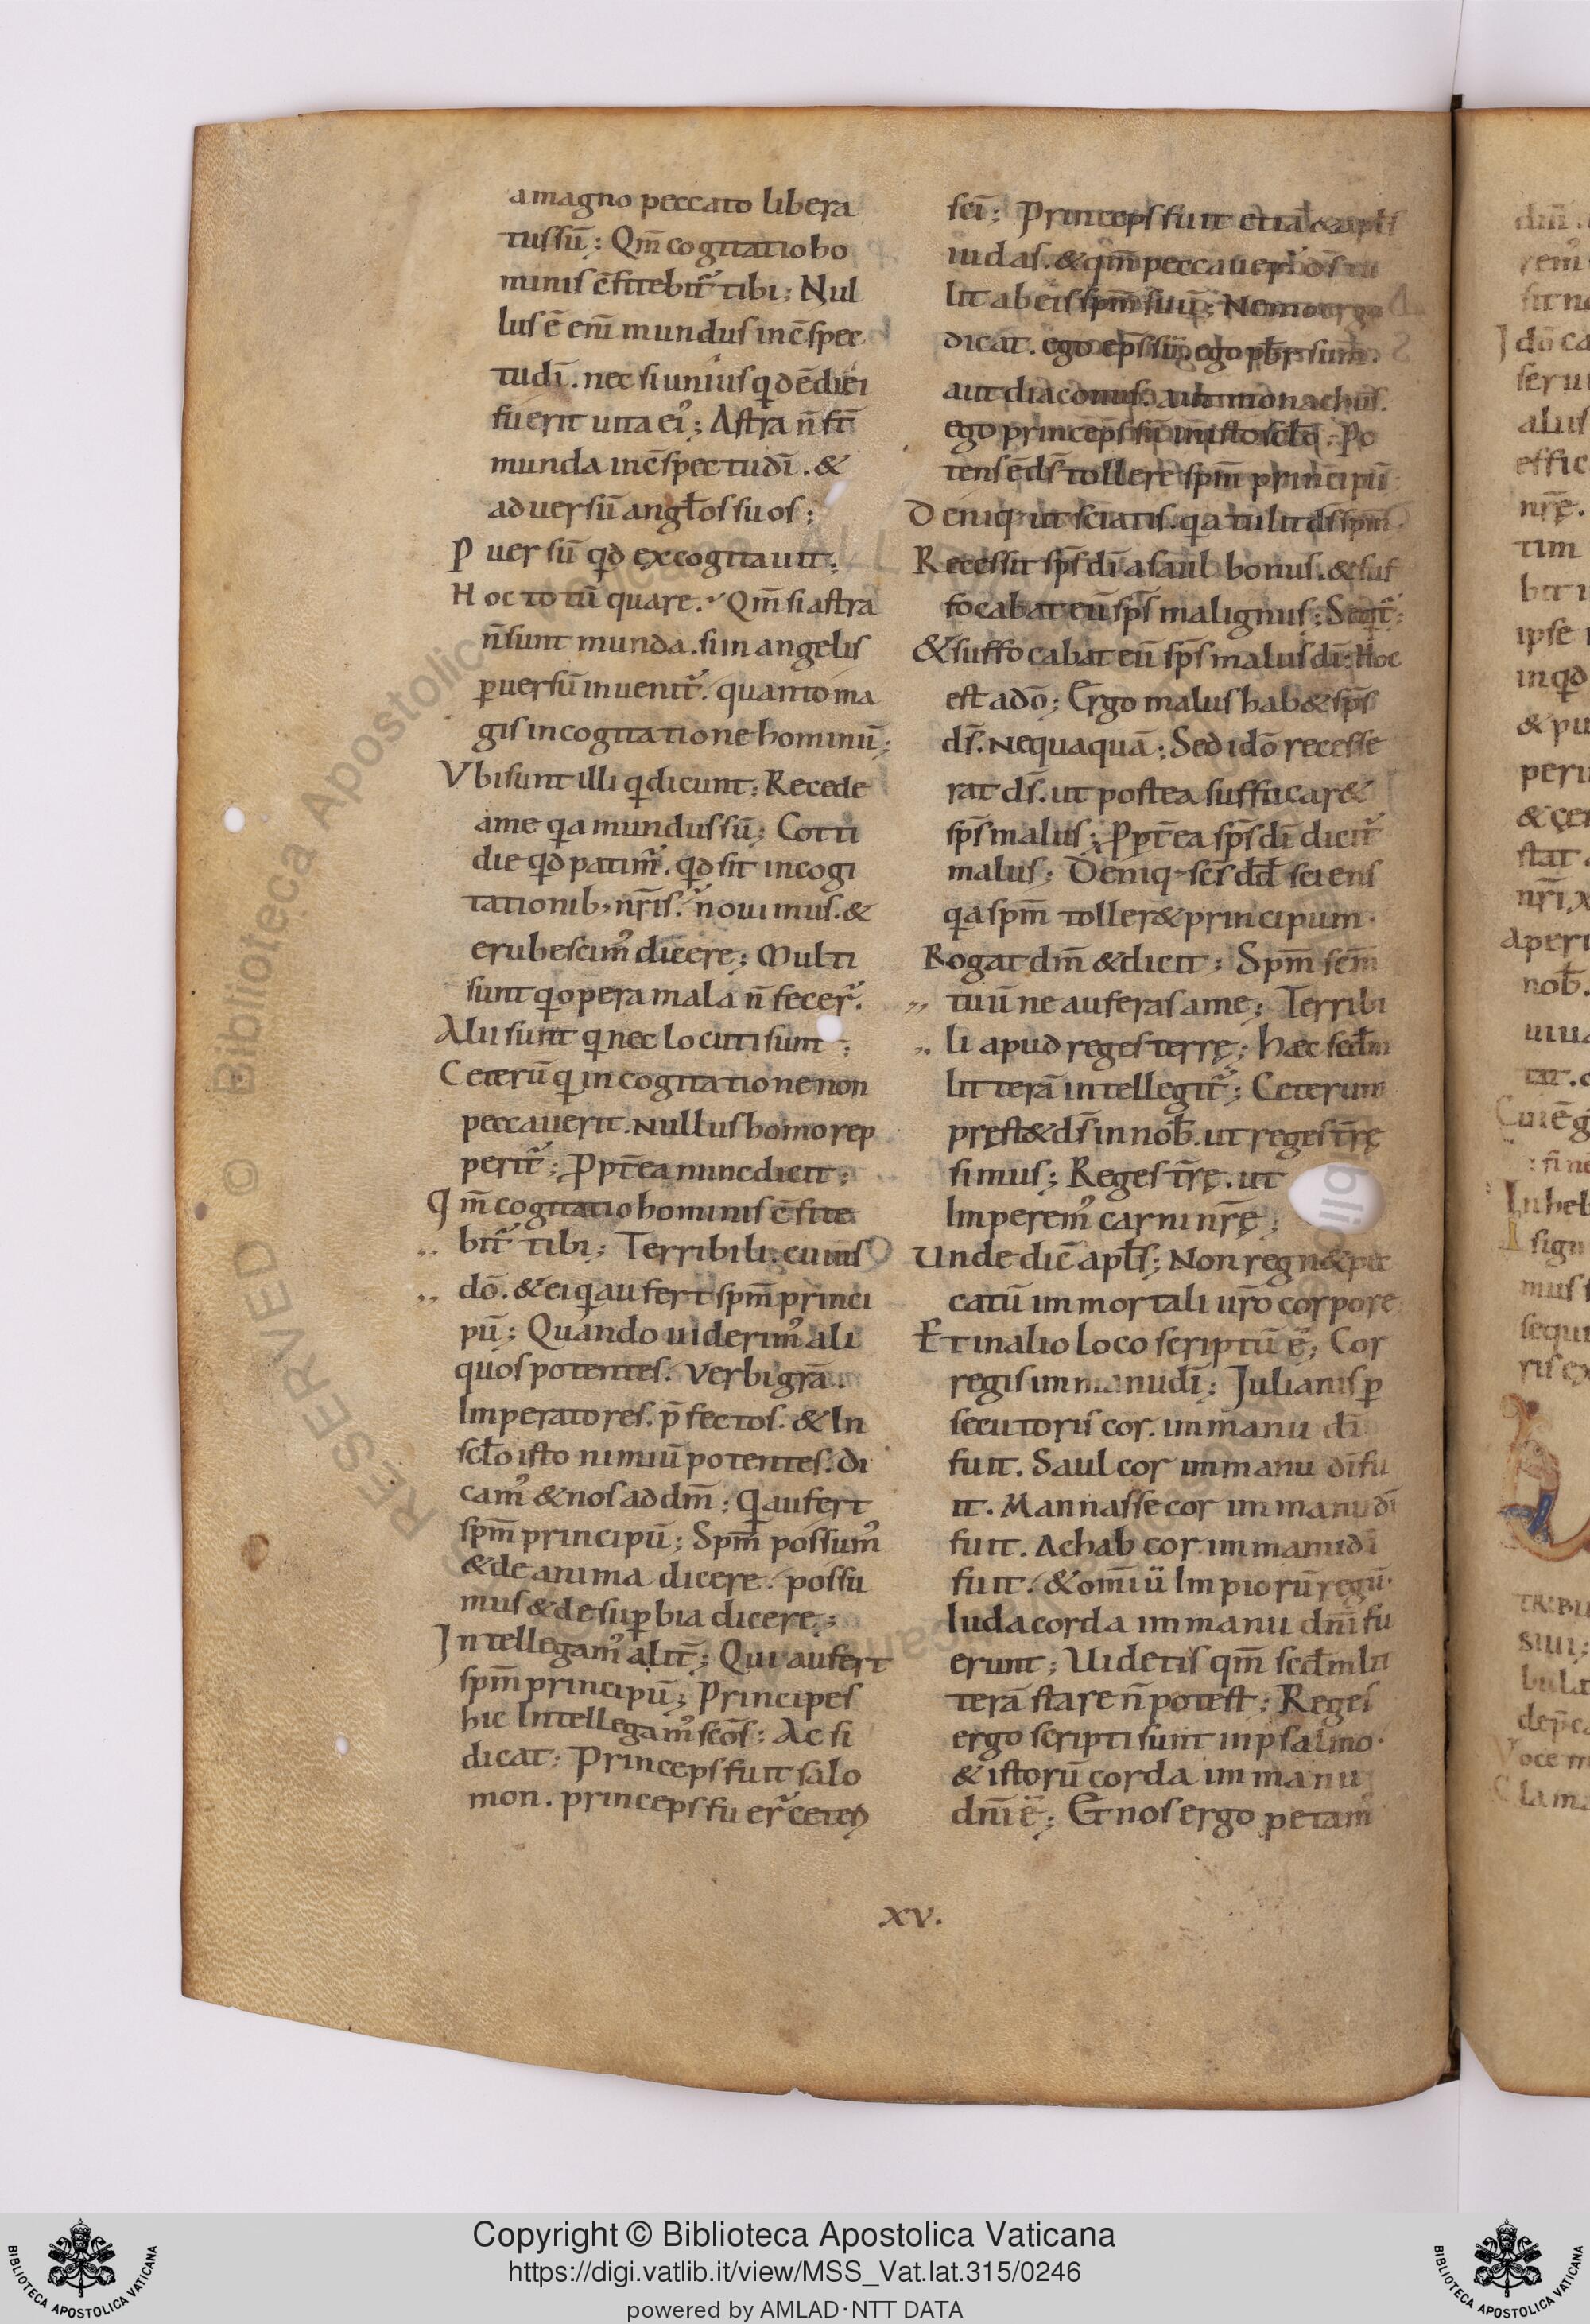 a magno peccato libera
tus sū; Qm̄ cogitatio ho
minis c̄fitebit᷑ tibi; Nul
lus ē enī mundus in c̄spec
tu dī. nec si unius qd ē diei
fuerit uita ei᾽; Astra n̄ st̄
munda in c̄spectu dī. &
aduersū angl̄os suos;
P uersū qd excogitauit;
Hoc totū quare. Qm̄ si astra
n̄ sunt munda. si in angelis
ꝑuersū inuenit᷑. quanto ma
gis in cogitatione hominū;
Vbi sunt illi q dicunt; Recede
a me qa mundus sū; Cotti
die qd patim᾽. qd sit in cogi
tationib; nr̄is. n̄ouimus. &
erubescim᾽ dicere; Multi
sunt q opera mala n̄ fecer᷑.
Alii sunt q nec locuti sunt;
Ceterū q in cogitatione non
peccauerit. Nullus homo rep
perit᷑; Ꝓpt̄ea nunc dicit;
Qm̄ cogitatio hominis c̄fite
bit᷑ tibi; Terribili. cum is
dō. & ei q aufert sp̄m princi
pū; Quando uiderim᾽ ali
quos potentes. Verbi grā.
Imperatores. p̄fectos. & In
scl̄o isto nimiū potentes. di
cam᾽ & nos ad dm̄; Q aufert
sp̄m principū; Spm̄ possum᾽
& de anima dicere. possu
mus & de suꝑbia dicere;
Intellegam᾽ alit̄; Qui aufert
spm̄ principū; Principes
hic Intellegam᾽ scōs; Ac si
dicat; Princeps fuit salo
mon. princeps fuer᷑ ceteꝝ
sci; Princeps fuit etiā & apl̄s
iudas. & qm̄ peccauer᷑ ds̄ tu
lit ab eis spm̄ suū; Nemo ergo
dicat. ego ep̄s sū. ego pb̄r sum.
aut diaconus. aut monachus.
ego princeps sū in isto scl̄o; Po
tens ē ds̄ tollere spm̄ principū
Deniq ut sciatis. qa tulit ds̄ spm̄.
Recessit sp̄s dī a saul bonus. & suf
focabat eū sp̄s malignus; Seqt᷑;
& suffocabat eū sp̄s malus dī; Hoc
est a dō; Ergo malus hab& sp̄s
ds̄. Nequaquā; Sed idō recesse
rat ds̄. ut postea suffucar&
sp̄s malus; Ꝓpt̄ea sp̄s dī dicit᷑
malus; Deniq scs̄ dd̄ sciens
qa spm̄ toller& principum.
Rogat dm̄ & dicit; Spm̄ scm̄
tuū ne auferas a me; Terribi
li apud reges terrę; Hæc scd̄m
litterā intellegit᷑; Ceterum
pręst& ds̄ in nob̄. ut reges tr̄ę
simus; Reges tr̄ę. ut
Imperem᾽ carni nr̄ę;
Unde dic̄ apl̄s; Non regn& pec
catū im mortali uro corpore
Et in alio loco scriptū ē; Cor
regis im manu dī; Juliani sꝑ
secutoris cor. im manu dī
fuit. Saul cor im manu dī fu
it. Mannasse cor im manu dī
fuit. Achab cor im manu dī
fuit. & omīū Impiorū regū.
Iuda corda im manu dnī fu
erunt; Uidetis qm̄ scd̄m lit
terā stare n̄ potest; Reges
ergo scripti sunt in psalmo.
& istorū corda im manu
dnī ē; Et nos ergo petam᾽
XV.
RESERVED © Biblioteca Apostolica Vaticana
Copyright © Biblioteca Apostolica Vaticana
https://digi.vatlib.it/view/MSS_Vat.lat.315/0246
powered by AMLAD·NTT DATA
BIBLIOTECA APOSTOLICA VATICANA
BIBLIOTECA APOSTOLICA VATICANA